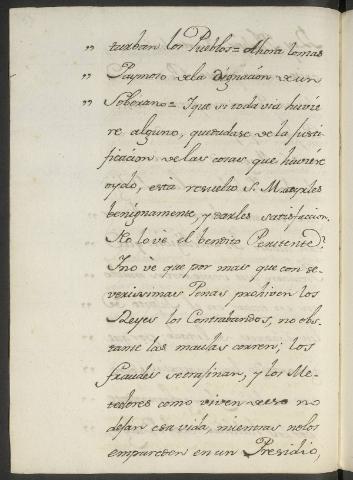 " turban los Pueblos = Ahora lo mas
" Paymoso de la dignacion de un
" Soberano = Y que si todavia huvie
re alguno, quexadose de la justi
ficacion de las cosas que huviere
oydo, está resuelto S. M. a oyrles
benignamente, y darles satisfaccion.
No lo vé el bendito Penitente?
Y no vé que por mas que con se-
verissimas Penas prohiven los
Reyes los Contrabandos, no obs-
tante las maulas corren; los
fraudes se trafinan, y los Me-
tedores como viven de eso no
dejan esa vida, mientras no los
empareden en un Presidio,